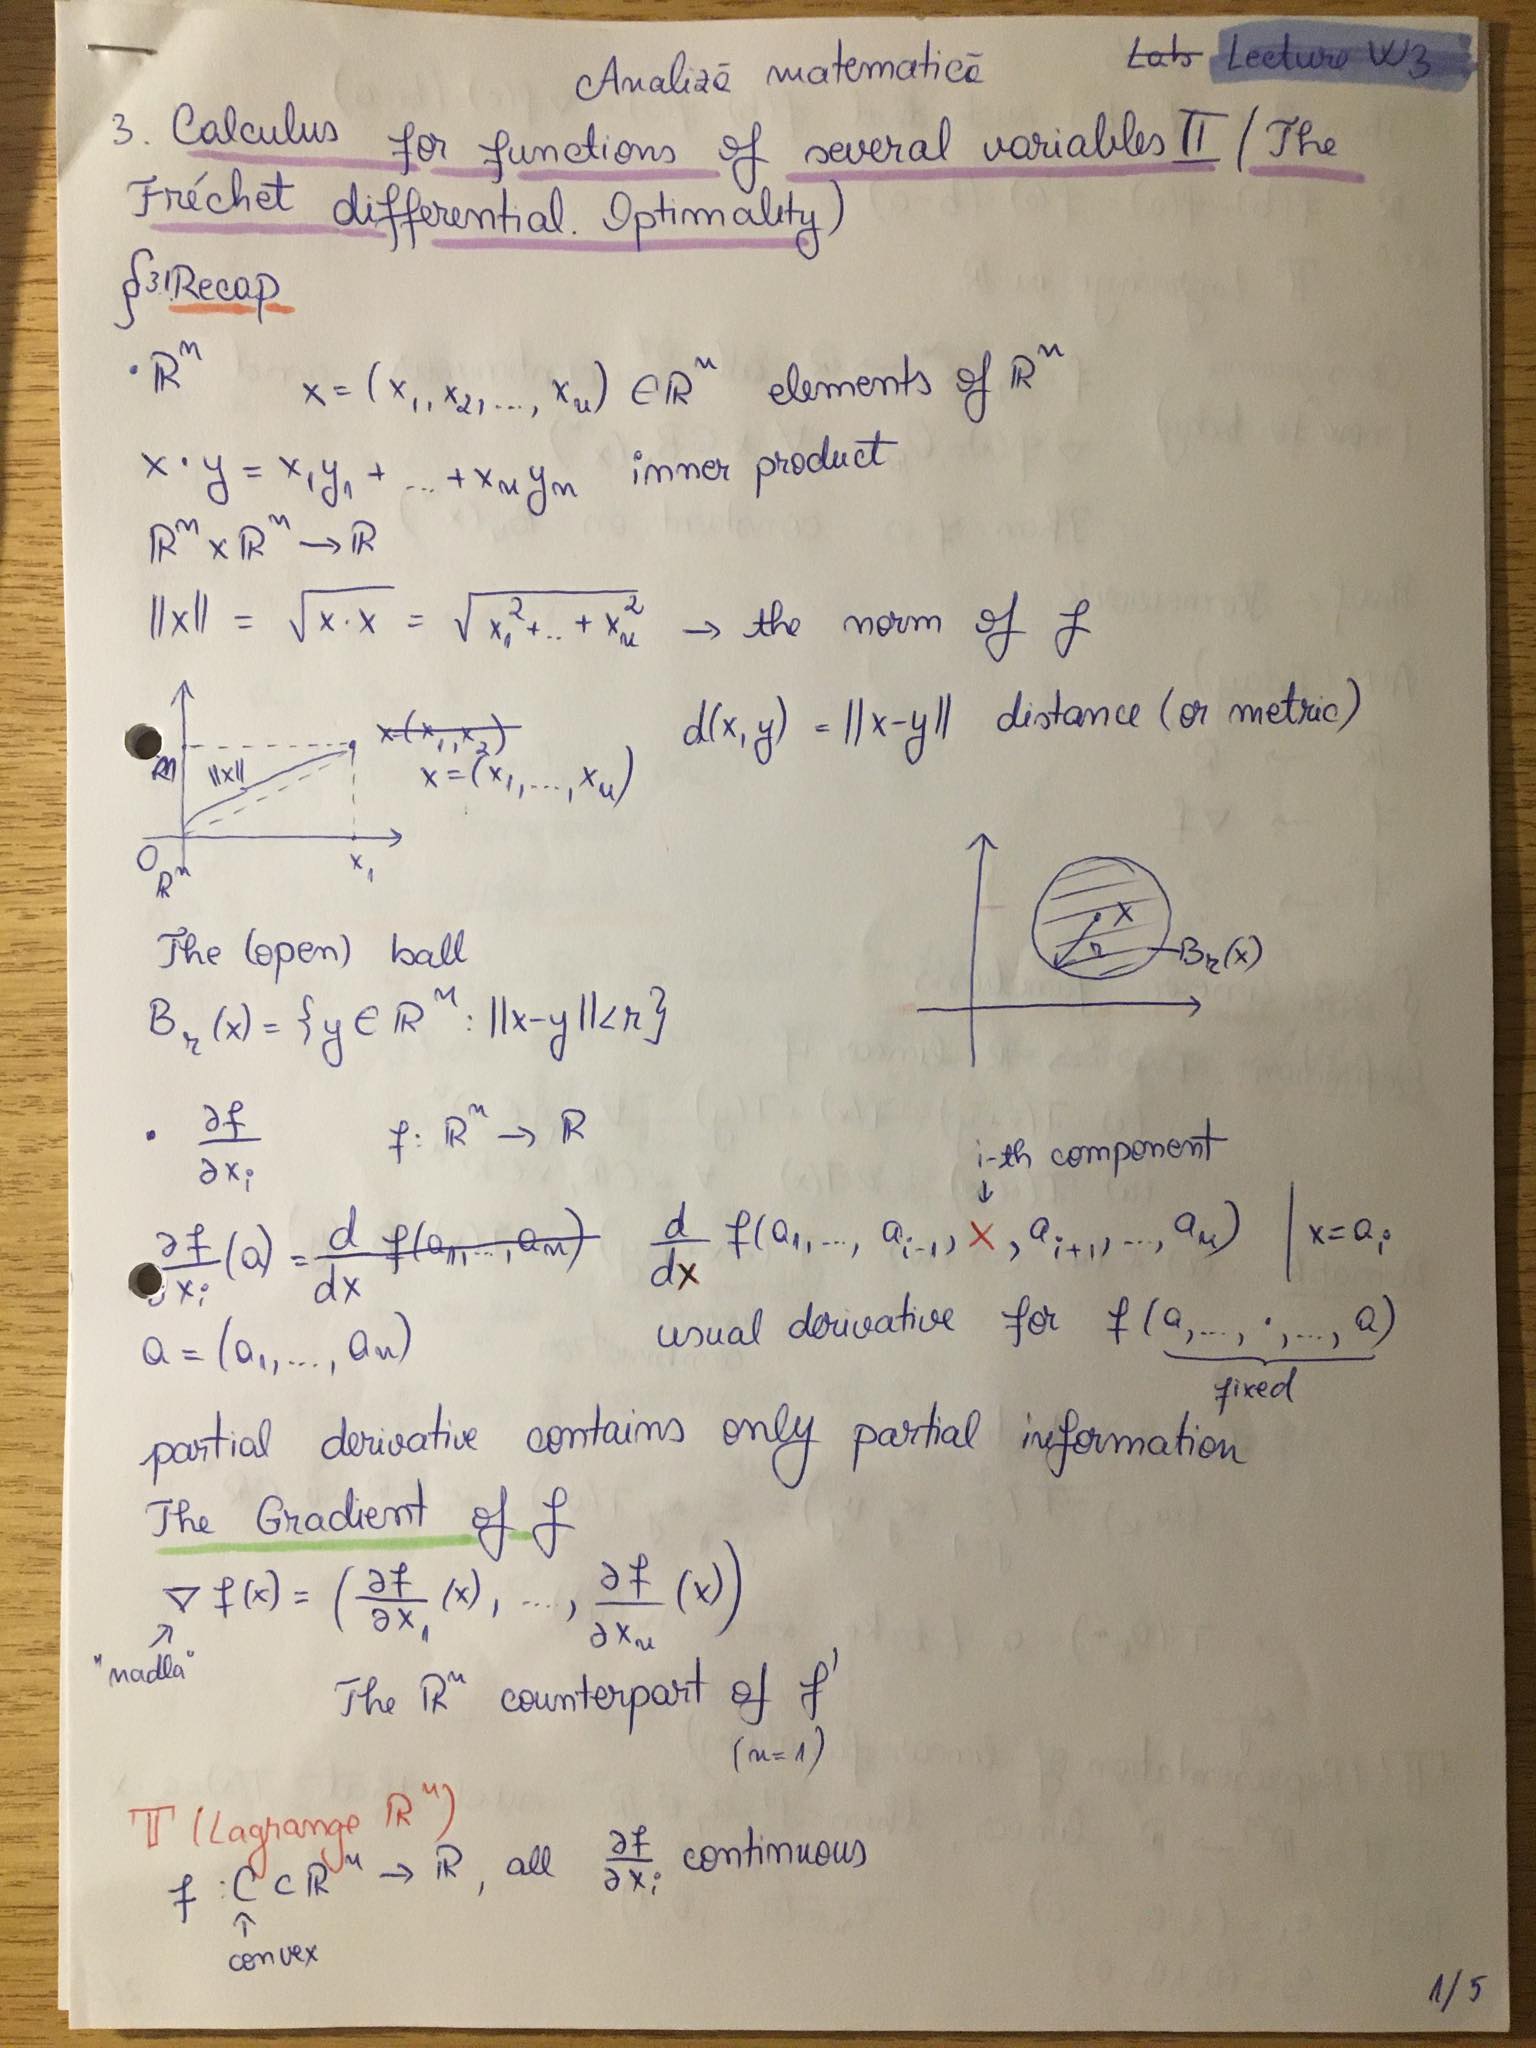 Analiză matematică
Lab Lecture W3
3. Calculus for functions of several variables II (The
Fréchet differential. Optimality)
§3.1 Recap
• ℝⁿ x = (x₁, x₂, ..., xₙ) ∈ ℝⁿ elements of ℝⁿ
x · y = x₁y₁ + ... + xₙyₙ inner product
ℝⁿ × ℝⁿ → ℝ
||x|| = √(x·x) = √(x₁² + .. + xₙ²) → the norm of f
x=(x₁,x₂)
d(x,y) = ||x-y|| distance (or metric)
||x|| x=(x₁,...,xₙ)
0_ℝⁿ x₁
x
r
B_r(x)
The (open) ball
B_r(x) = {y ∈ ℝⁿ : ||x-y|| < r}
• ∂f/∂xᵢ f: ℝⁿ → ℝ
i-th component
↓
∂f/∂xᵢ (a) = d/dx f(a₁,...,aₙ) d/dx f(a₁,..., aᵢ₋₁, x, aᵢ₊₁,..., aₙ) | x=aᵢ
a = (a₁,..., aₙ) usual derivative for f(a,..., ·,..., a)
fixed
partial derivative contains only partial information
The Gradient of f
∇ f(x) = (∂f/∂x₁ (x), ...., ∂f/∂xₙ (x))
↗
"nadla"
The ℝⁿ counterpart of f'
(n=1)
T (Lagrange ℝⁿ)
f : C ⊂ ℝⁿ → ℝ, all ∂f/∂xᵢ continuous
↑
convex
1/5